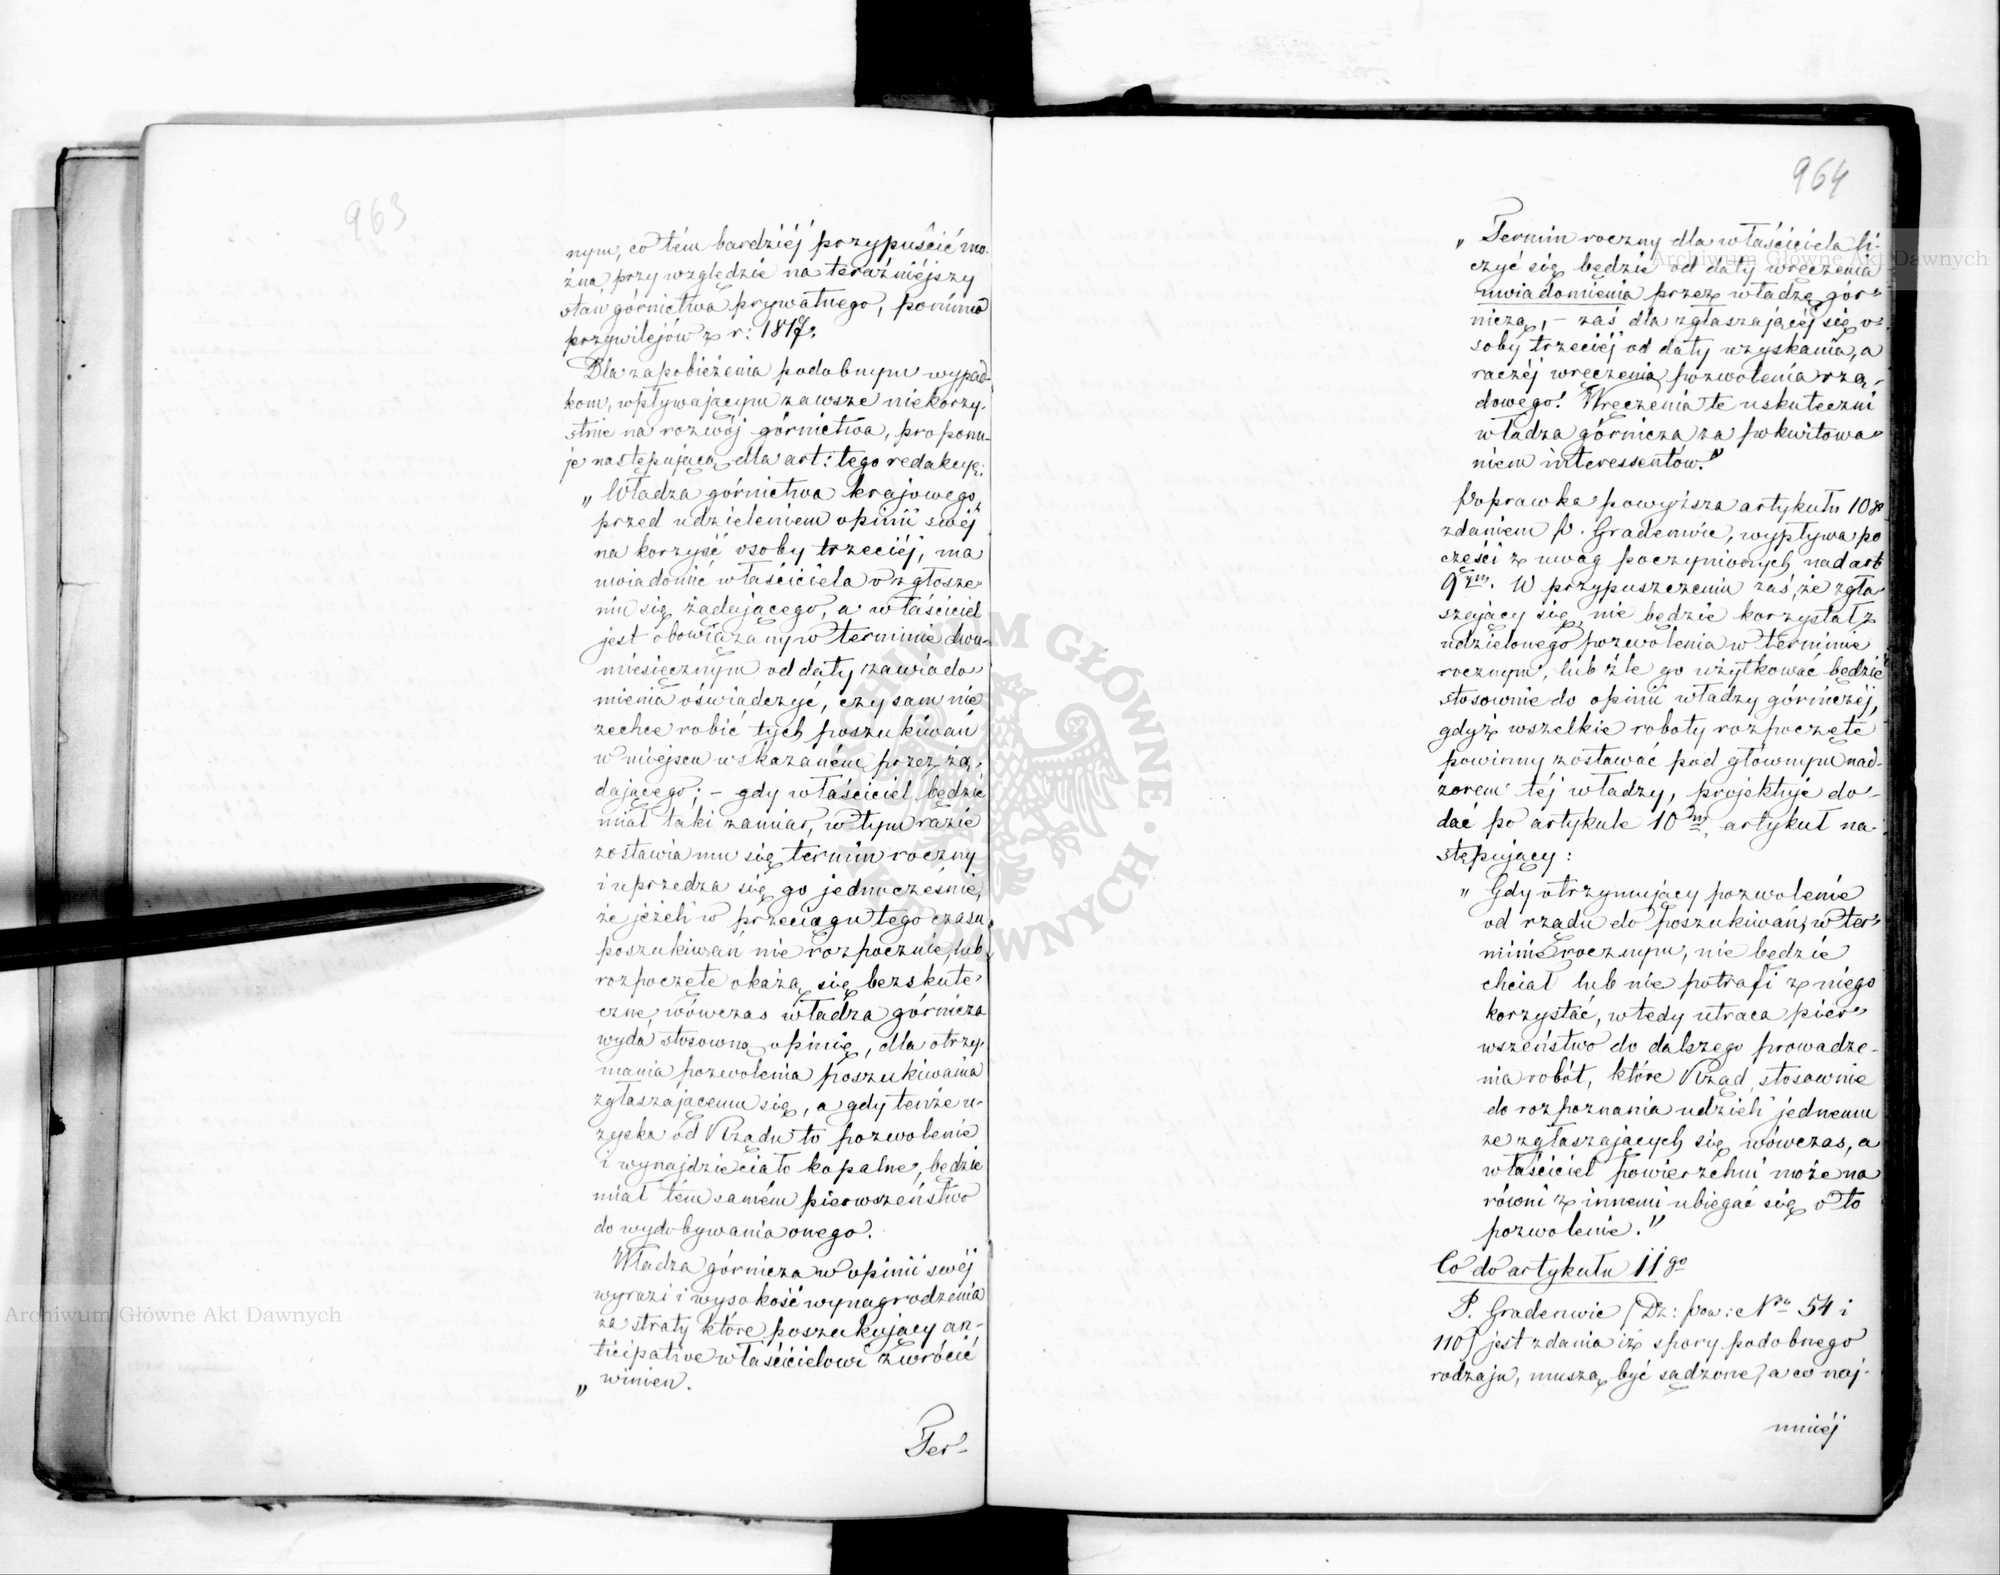 963
nym, co tém bardziéj przypuścić mo-
żna, przy względzie na teraźniéjszy
stan górnictwa prywatnego, pomimo
przywilejów z r: 1817.
Dla zapobieżenia podobnym wypad-
kom, wpływającym zawsze niekorzy-
stnie na rozwój górnictwa, proponu-
je następującą dla art: tego redakcyę:
„Władza górnictwa krajowego,
przed udzieleniem opinii swéj
na korzyść osoby trzeciéj, ma
uwiadomić właściciela o zgłosze-
niu się żądającego, a właściciel
jest obowiązany w terminie dwu-
miesięcznym od daty zawiado-
mienia oświadczyć, czy sam nie
zechce robić tych poszukiwań
w miéjscu wskazaném przez żą-
dającego; – gdy właściciel będzie
miał taki zamiar, w tym razie
zostawia mu się termin roczny
i uprzedza się go jednocześnie,
że jeżeli w przeciągu tego czasu
poszukiwań nie rozpocznie, lub
rozpoczęte okażą się bezskute-
czne, wówczas władza górnicza
wyda stosowną opinię, dla otrzy-
mania pozwolenia poszukiwania
zgłaszającemu się, a gdy tenże u-
zyska od Rządu to pozwolenie
i wynajdzie ciało kopalne, będzie
miał tém samém pierwszeństwo
do wydobywania onego.
Władza górnicza w opinii swéj
wyrazi i wysokość wynagrodzenia
za straty które poszukujący an-
ticipative właścicielowi zwrócić
„ winien.
Ter-
964
„Termin roczny dla właściciela li-
czyć się będzie od daty wręczenia
uwiadomienia przez władzę gór-
niczą, – zaś dla zgłaszającéj się o-
soby trzeciéj od daty uzyskania, a
raczéj wręczenia pozwolenia rzą-
dowego. Wręczenia te uskuteczni
władza górnicza za pokwitowa-
niem interessentów."
Poprawka powyższa artykułu 10go
zdaniem P. Gradenwic, wypływa po
części z uwag poczynionych nad art
9tym. W przypuszczeniu zaś, że zgła-
szający się nie będzie korzystał z
udzielonego pozwolenia w terminie
rocznym, lub źle go użytkować będzie
stosownie do opinii władzy górniczéj,
gdyż wszelkie roboty rozpoczęte
powinny zostawać pod głównym nad-
zorem téj władzy, projektuje do-
dać po artykule 10m, artykuł na-
stępujący:
„Gdy otrzymujący pozwolenie
od rządu do poszukiwań, w ter-
minie rocznym, nie będzie
chciał lub nie potrafi z niego
korzystać, wtedy utraca pier-
wszeństwo do dalszego prowadze-
nia robót, które Rząd, stosownie
do rozpoznania udzieli jednemu
ze zgłaszających się wówczas, a
właściciel powierzchni może na
równi z innemi ubiegać się o to
pozwolenie."
Co do artykułu 11go
P. Gradenwic (Dz: pow: Nra 54 i
110) jest zdania iż spory podobnego
rodzaju, muszą być sądzone, a co naj-
mniéj
ARCHIWUM GŁÓWNE AKT DAWNYCH
Archiwum Główne Akt Dawnych
Archiwum Główne Akt Dawnych